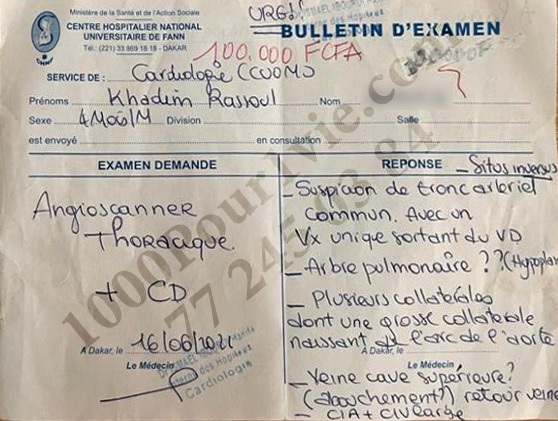 Ministère de la Santé et de l'Action Sociale
CENTRE HOSPITALIER NATIONAL
UNIVERSITAIRE DE FANN
Tél.: (221) 33 869 18 18 - DAKAR
URG!
BULLETIN D'EXAMEN
100.000 FCFA
SERVICE DE : Cardiologie CCUOMS
Prénoms Khadim Rassoul Nom
Sexe 4M06J/M Division Salle
est envoyé en consultation
EXAMEN DEMANDE
Angioscanner
Thoracique
+ CD
A Dakar, le 16/06/2021
Le Médecin
Interne des Hopitaux
Cardiologie
REPONSE
- Situs inversus
- Suspicion de tronc arteriel
commun. Avec un
Vx unique sortant du VD
- Arbre pulmonaire ?? (Hypoplas
- Plusieurs collatérales
dont une grosse collaterale
naissant de l'arc de l'aorte
A Dakar, le
Le Médecin
- Veine cave supérieure?
(abouchement?) retour veine
- CIA + CIV large
1000Pour1Vie.com
77 245 03 84